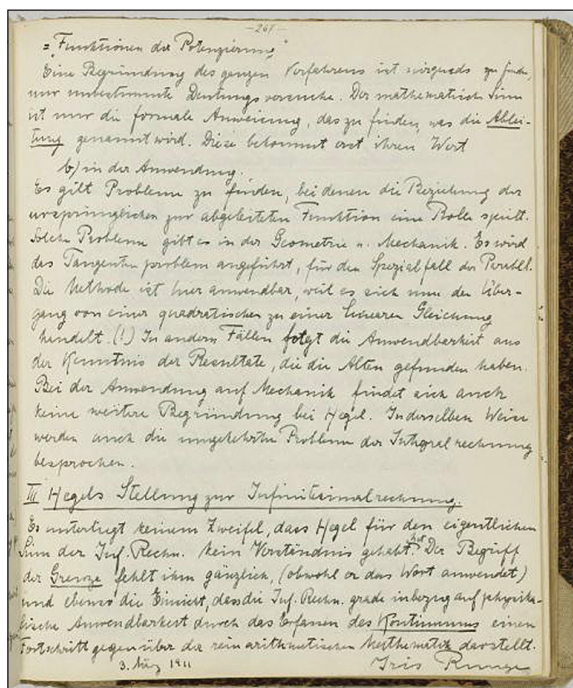 - 267 -
= „Funktionen der Potenzierung“
Eine Begründung des ganzen Verfahrens ist nirgends zu finden,
nur unbestimmte Deutungsversuche. Der mathematische Sinn
ist nur die formale Anweisung, das zu finden, was die Ablei-
tung genannt wird. Diese bekommt erst ihren Wert
b) in der Anwendung.
Es gilt Probleme zu finden, bei denen die Beziehung der
ursprünglichen zur abgeleiteten Funktion eine Rolle spielt.
Solche Probleme gibt es in der Geometrie u. Mechanik. Es wird
das Tangentenproblem angeführt, für den Spezialfall der Parabel.
Die Methode ist hier anwendbar, weil es sich um den Über-
gang von einer quadratischen zu einer linearen Gleichung
handelt. (!) In andern Fällen folgt die Anwendbarkeit aus
der Kenntnis der Resultate, die die Alten gefunden haben.
Bei der Anwendung auf Mechanik findet sich auch
keine weitere Begründung bei Hegel. In derselben Weise
werden auch die umgekehrten Probleme der Integralrechnung
besprochen.
III Hegels Stellung zur Infinitesimalrechnung.
Es unterliegt keinem Zweifel, dass Hegel für den eigentlichen
Sinn der Inf. Rechn. kein Verständnis gehabt hat. Der Begriff
der Grenze fehlt ihm gänzlich, (obwohl er das Wort anwendet)
und ebenso die Einsicht, dass die Inf. Rechn. grade inbezug auf physika-
lische Anwendbarkeit durch das Erfassen des Kontinuums einen
Fortschritt gegenüber der rein arithmetischen Mathematik darstellt.
3. März 1911 Iris Runge